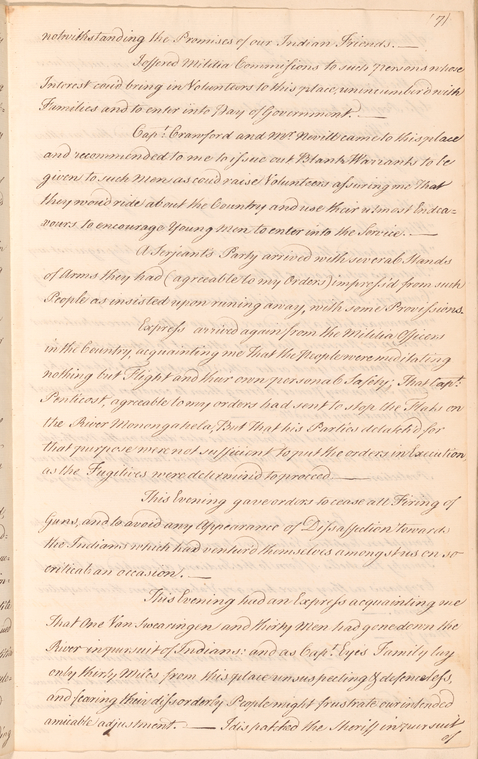 171.
notwithstanding the Promises of our Indian Friends. —
I offered Militia Commissions to such Persons whose
Interest coud bring in Volunteers to this place, unincumberd with
Families and to enter into Pay of Government. —
Capt. Crawford and Mr. Nevill came to this place
and recommended to me to issue out Blank Warrants to be
given to such Men as coud raise Volunteers assuring me That
they woud ride about the Country and use their utmost Endea-
vours to encourage Young Men to enter into the Service. —
A Serjeant's Party arrived with several Stands
of Arms they had (agreeable to my Orders) impress'd from such
People as insisted upon runing away, with some Provissions.
Express arrived again from the Militia Officers
in the Country, acquainting me that the People were meditating
nothing but Flight and their own personal Safety; That Capt.
Penticost, agreeable to my orders had sent to stop the Flats on
the River Monongahela, But that his Parties detatch'd for
that purpose were not sufficient to put the orders in Execution,
as the Fugitives were determined to proceed —
This Evening gave orders to cease all Firing of
Guns, and to avoid any Appearance of Dissaffection towards
the Indians which had venturd themselves amongst us on so
critical an occasion. —
This Evening had an Express acquainting me
That One Van Swearingen and thirty Men had gone down the
River in pursuit of Indians: and as Capt. Eyes Family lay
only thirty Miles from this place unsuspecting & defenceless,
and fearing their dissorderly People might frustrate our intended
amicable adjustment. — I dispatched the Sheriff in pursuit
of